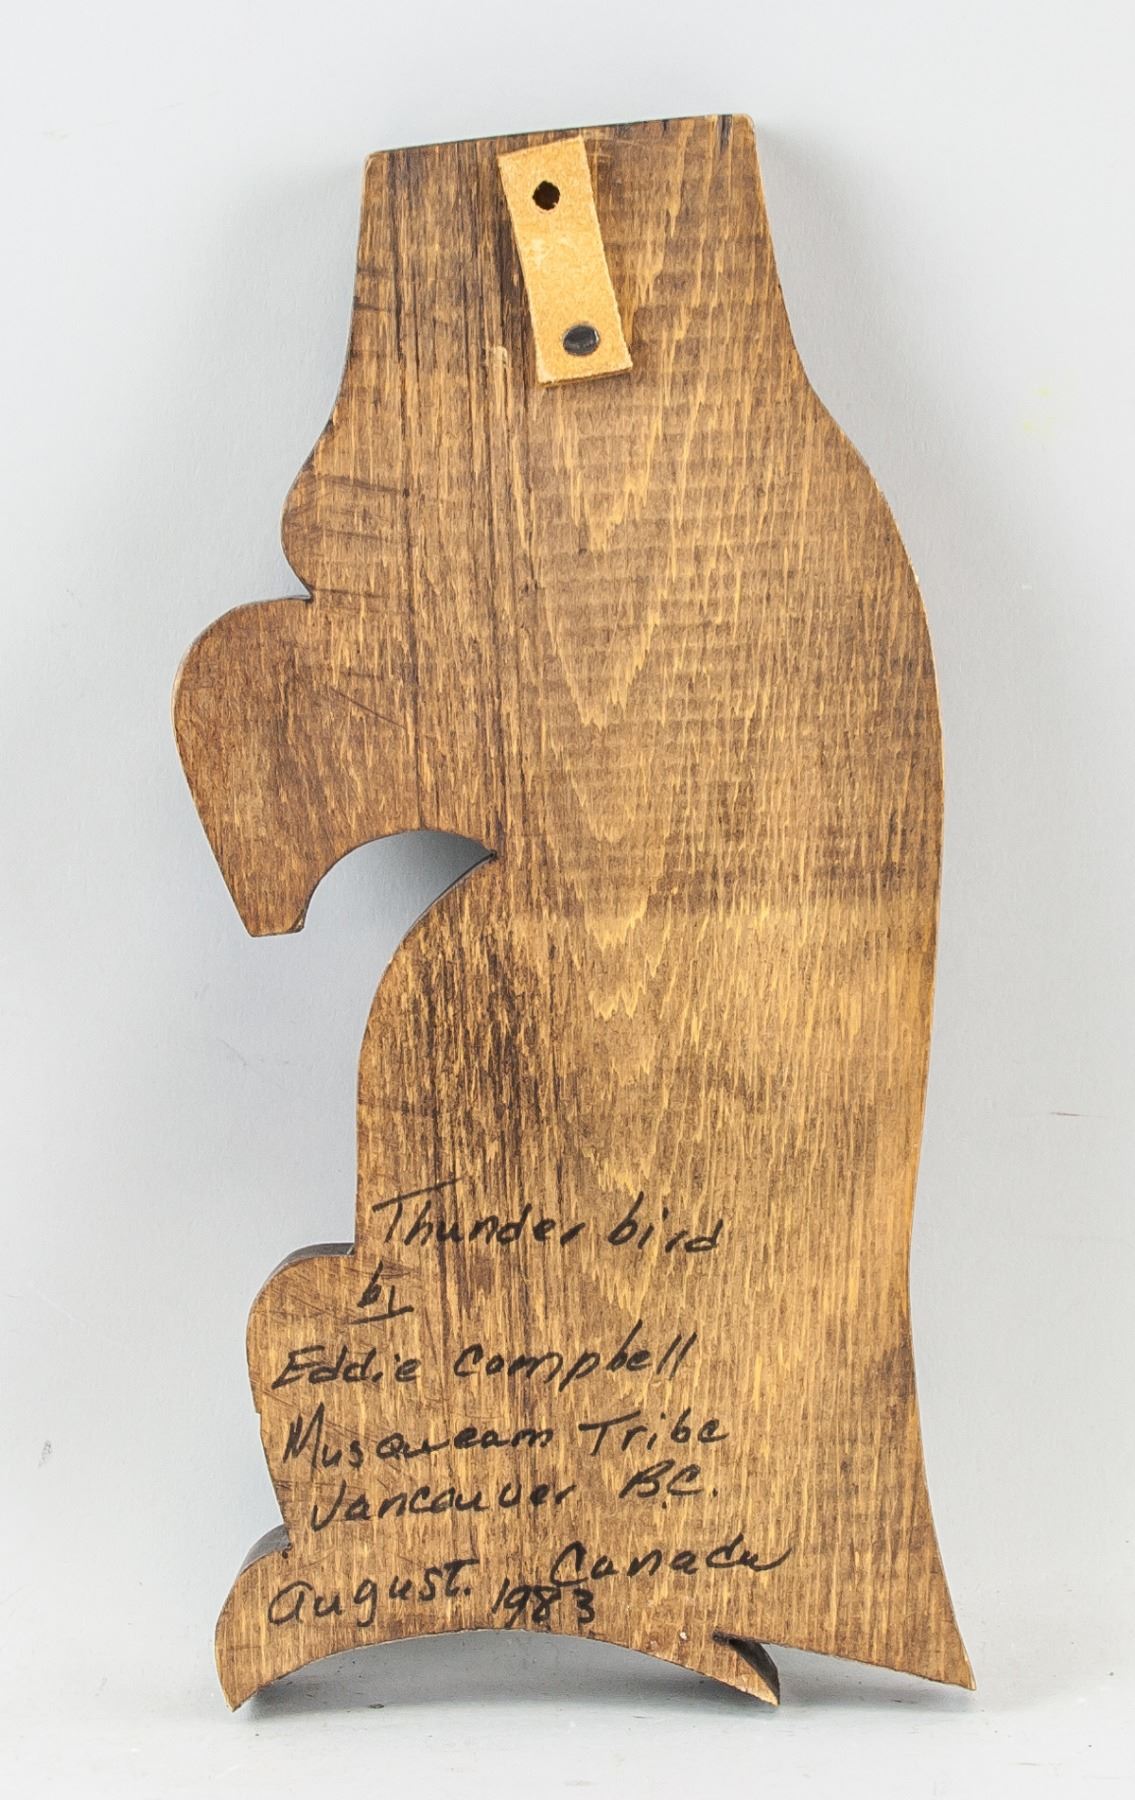 Thunder bird
by
Eddie Campbell
Musqueam Tribe
Vancouver B.C.
Canada
August. 1983